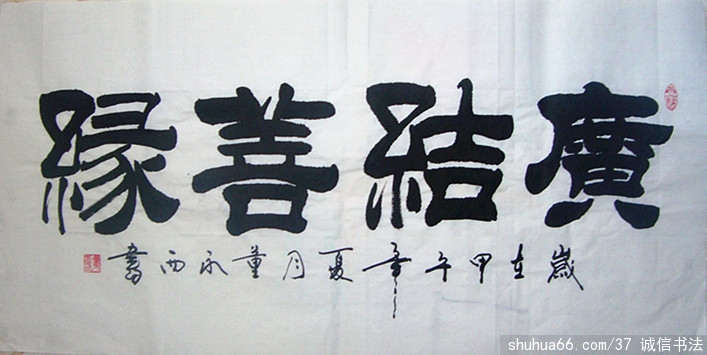 廣結善緣
歲在甲午年夏月董永西書
shuhua66.com/37 诚信书法